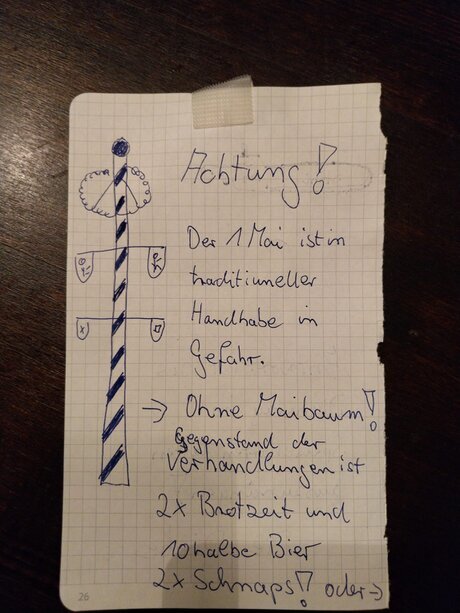 Achtung!
Der 1 Mai ist in
traditiuneller
Handhabe in
Gefahr.
→ Ohne Maibaum!
Gegenstand der
Verhandlungen ist
2x Brotzeit und
10 halbe Bier
2x Schnaps! oder →
26